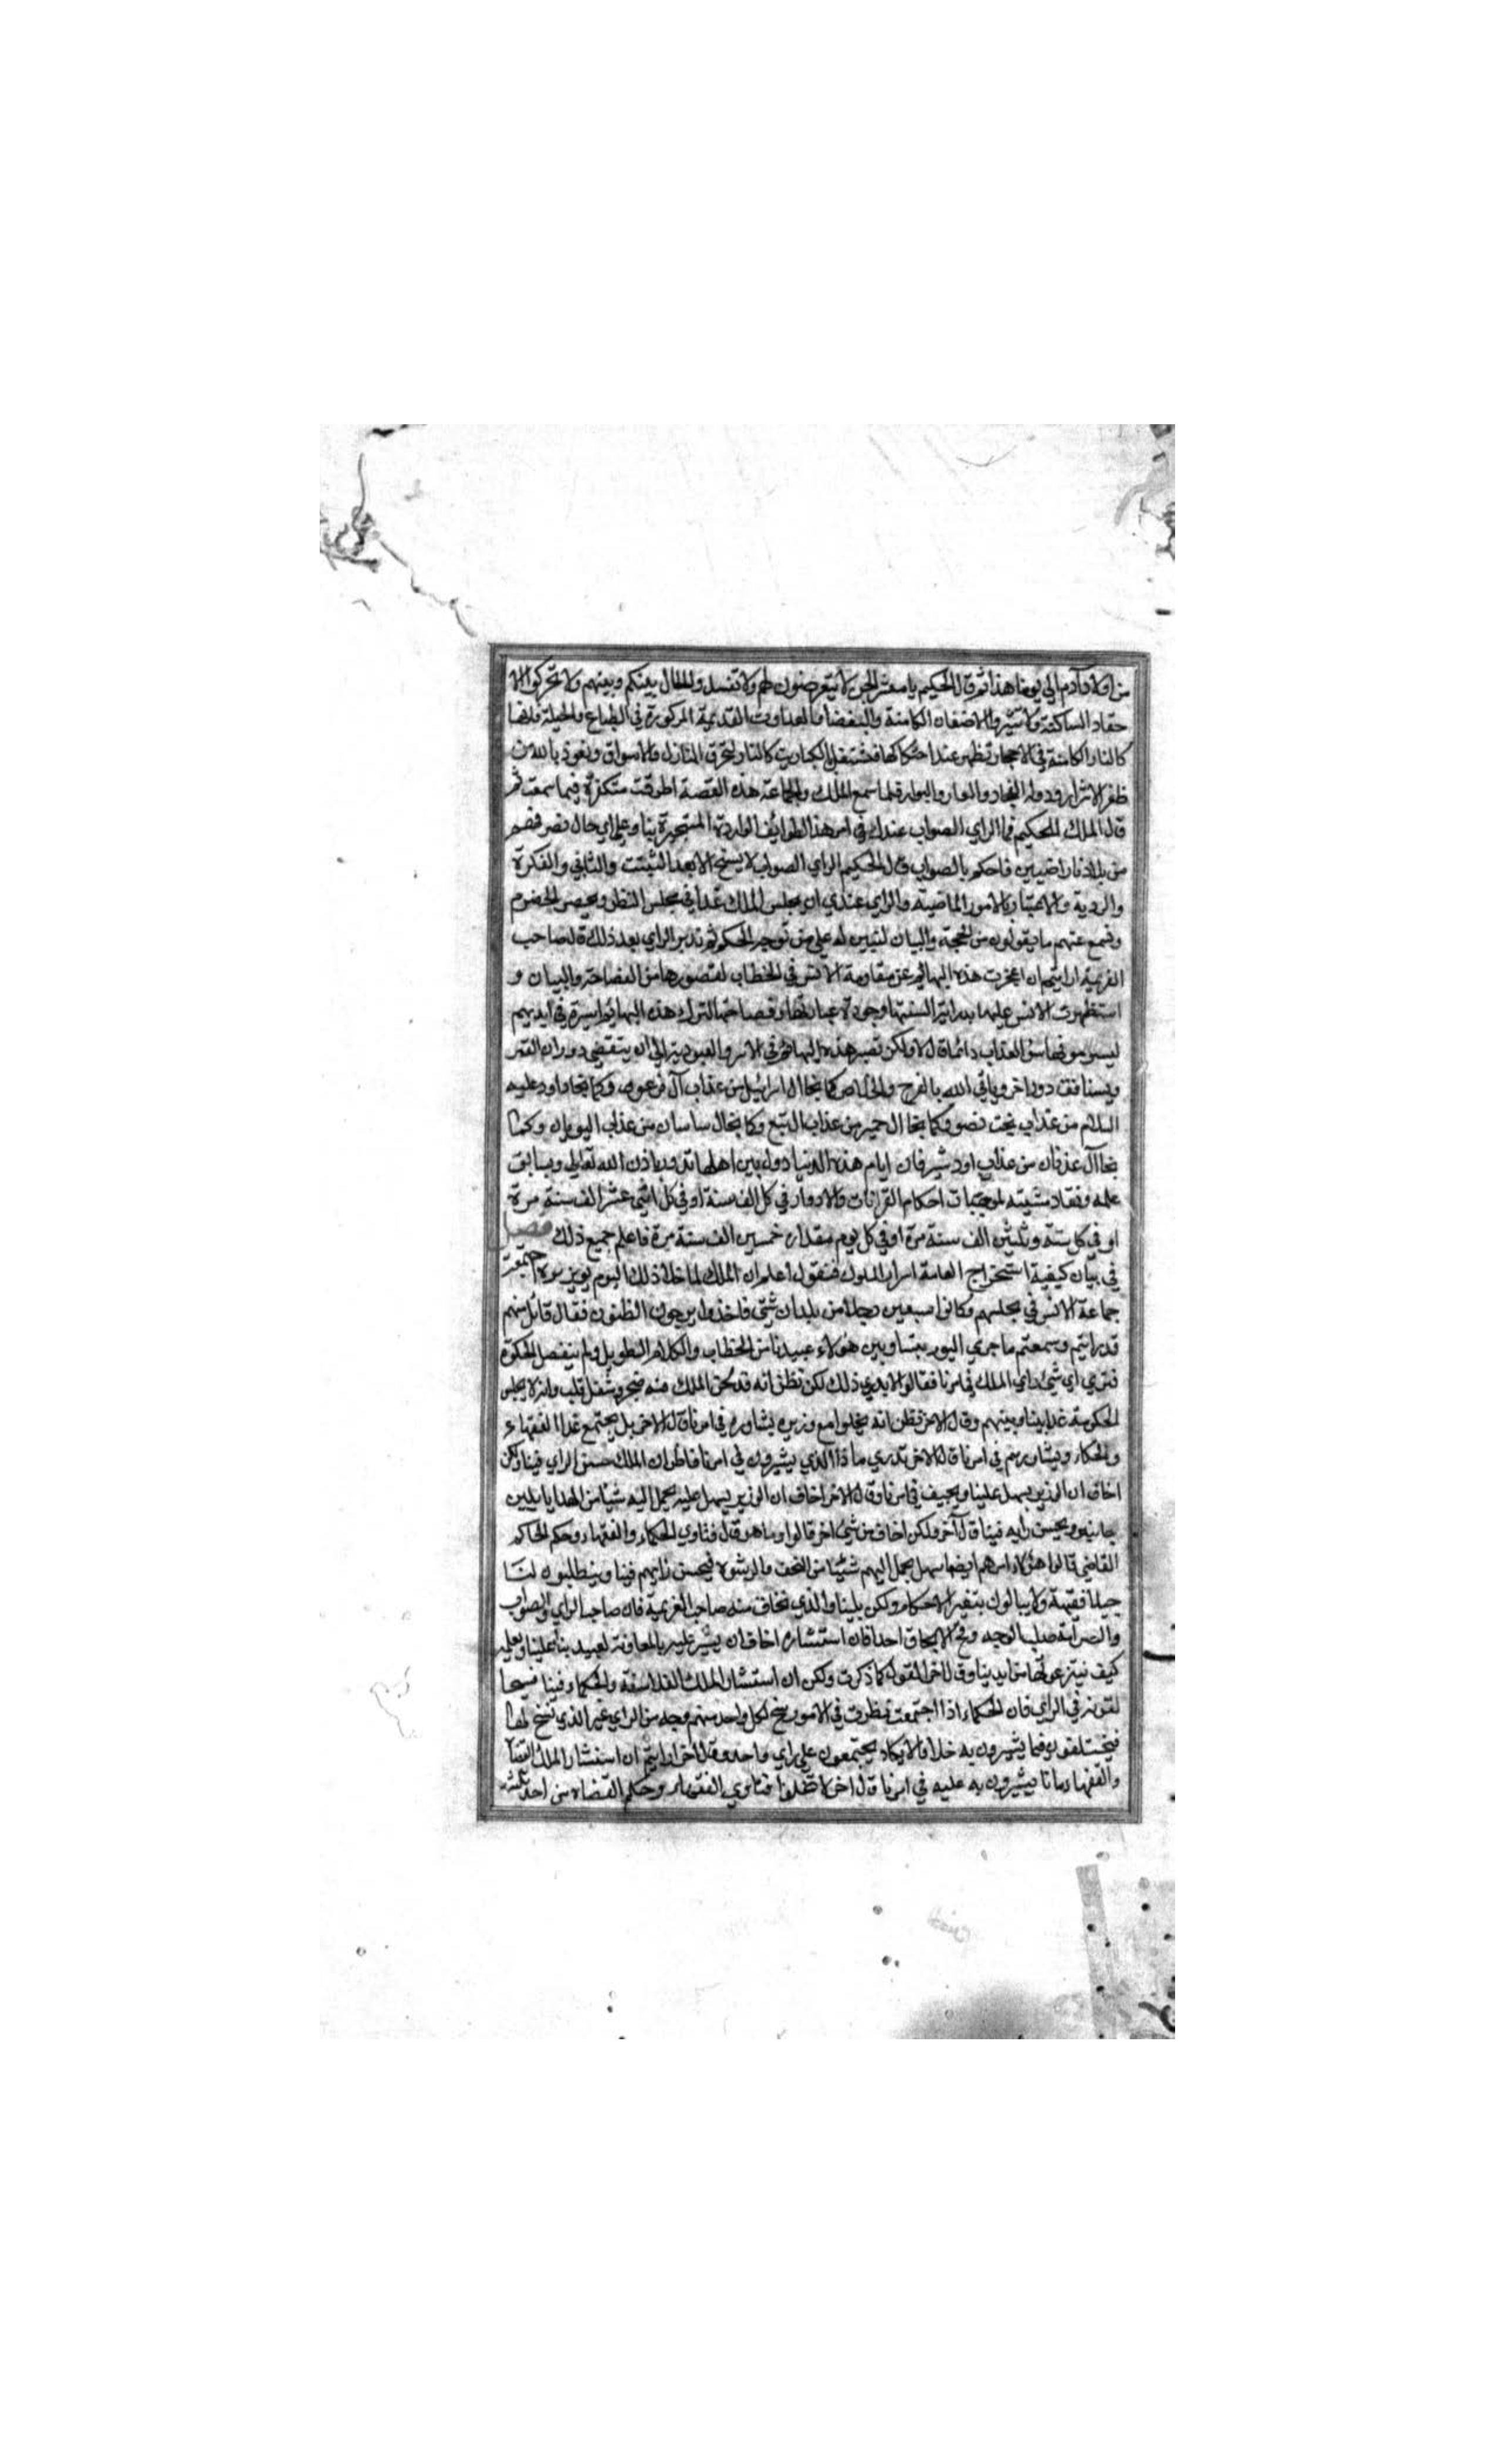 من اولاد آدم الي يومنا هذا ثم قال الحكيم يا معشر الجن لا تتعرضون لهم ولا تفسد والحال بينكم وبينهم ولا تحركوا الا
حقاد الساكنة ولا تثيروا الاضغان الكامنة والبغضا والعداوت القديمة المركوزة في الطباع والجبلة فانها
كالنار الكامنة في الاحجار تظهر عند احتكاكها فتشتعل بالكباريت كالنار لتحرق المنازل والاسواق ونعوذ بالله من
ظفر الاشرار ودولة الفجار والعار والبوار فلما سمع الملك والجماعة هذه القصة اطرقت متفكرة فيما سمعت ثم
قال الملك للحكيم فما الراي الصواب عندك في امر هذا الطوايف الواردة المستجيرة بنا وعلي اي حال نصرفهم
من بلادنا راضيين فاحكم بالصواب قال الحكيم الراي الصواب لا يسنح الا بعد التثبت والتاني والفكرة
والروية والاعتبار بالامور الماضية والراي عندي ان يجلس الملك غدا في مجلس النظر ويحضر الخصوم
ونسمع عنهم ما يقولون من الحجة والبيان لتبين له علي من توجه الحكم ثم ندبر الراي بعد ذلك قال صاحب
العزيمة ارايتم ان عجزت هذه البهائم عن مقاومة الانس في الخطاب لقصورها من الفصاحة والبيان و
استظهرت الانس عليها بدراية السنتها وجودة عباراتها وفصاحتها اتترك هذه البهائم اسيرة في ايديهم
ليسومونها سوء العذاب دائما قال لا ولكن تصبر هذه البهائم في الاسر والعبودية الي ان ينقضي دوران القمر
ويستانف دور اخر وياتي الله بالفرج والخلاص كما نجا ال اسرائيل من عذاب آل فرعون وكما نجا داود عليه
السلام من عذاب بخت نصر وكما نجا ال حمير من عذاب ال تبع وكما نجا ال ساسان من عذاب اليونان وكما
نجا آل عدنان من عذاب اردشير فان ايام هذه الدنيا دول بين اهلها تدور باذن الله تعالي وسابق
علمه ونفاد مشيته بموجبات احكام القرانات والادوار في كل الف سنة او في كل اثني عشر الف سنة مرة
او في كل ستة وثلثين الف سنة مرة او في كل يوم مقداره خمسين الف سنة مرة فاعلم جميع ذلك فصل
في بيان كيفية استخراج العامة اسرار الملوك فنقول اعلم ان الملك لما خلا ذلك اليوم بوزيره اجتمعت
جماعة الانس في مجلسهم وكانوا سبعين رجلا من بلدان شتي فاخذوا يرجمون الظنون فقال قائل منهم
قد رايتم وسمعتم ما جري اليوم بيننا وبين هؤلاء عبيدنا من الخطاب والكلام الطويل ولم ينفصل الحكومة
فتري اي شيء راي الملك في امرنا فقالوا لا ندري ذلك لكن نظن انه قد لحق الملك منه ضجر وشغل قلب وانه لا يجلس
للحكومة غدا بيننا وبينهم وقال الاخر نظن انه يخلوا مع وزيره يشاوره في امرنا قال الاخر بل يجتمع غدا الفقهاء
والحكماء ويشاورهم في امرنا قال الاخر تدري ما ذا الذي يشيرون في امرنا فاظن ان الملك حسن الراي فينا ولكن
اخاف ان الوزير يميل علينا ويحيف في امرنا وقال الاخر اخاف ان الوزير يسهل عليه يحمل اليه شيئا من الهدايا يلين
جانبه ويحسن رايه فينا قال آخر ولكن اخاف من شيء اخر قالوا وما هو قال فتاوي الحكماء والفقهاء وحكم الحاكم
القاضي قالوا هؤلاء امرهم ايضا سهل يحمل اليهم شيئا من التحف والرشوة فيحسن رايهم فينا ويطلبون لنا
حيلا فقهية ولا يبالون بتغير الاحكام ولكن بلينا والذي نخاف منه صاحب العزيمة فانه صاحب الراي والصواب
والصرامة صلب الوجه وقح لا يحابي احدا فان استشاره اخاف ان يشير عليه بالمعاونة لعبيدنا علينا ويعلمه
كيف ينتزعونها من ايدينا وقال اخر القول كما ذكرت ولكن ان استشار الملك الفلاسفة والحكماء فينا فيحا
لفونه في الراي فان الحكماء اذا اجتمعت ونظرت في الامور سنح لكل واحد منهم وجه من الراي غير الذي سنح لهذا
فيختلفون فيما يشيرون به خلافا لا يكاد يجتمعون علي راي واحد وقال اخر ارايتم ان استشار الملك القضاة
والفقهاء ماذا يشيرون به عليه في امرنا قال اخر لا تخلوا فتاوي الفقهاء وحكم القضاه من احد ثلثة